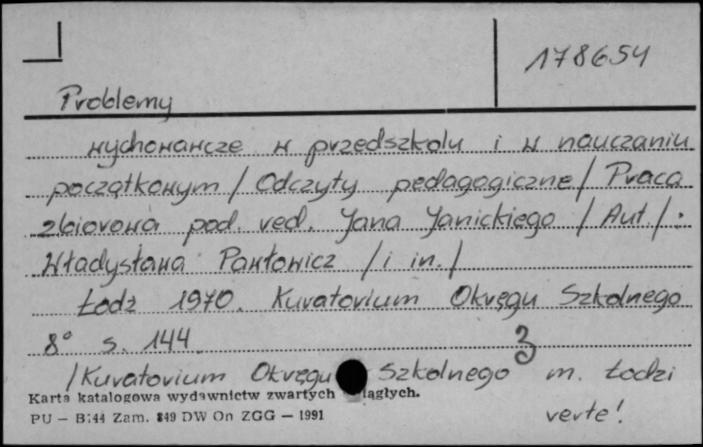 178654
Problemy
wychowawcze w przedszkolu i w nauczaniu
początkowym / Odczyty pedagogiczne / Praca
zbiorowa pod. red. Jana Janickiego / Aut. / :
Władysława Pawłowicz / i in. /
Łódź 1970. Kuratorium Okręgu Szkolnego
8° s. 144. 3
/ Kuratorium Okręgu Szkolnego m. Łodzi
Karta katalogowa wydawnictw zwartych iągłych.
PU — B:44 Zam. 849 DW On ZGG — 1991
verte!